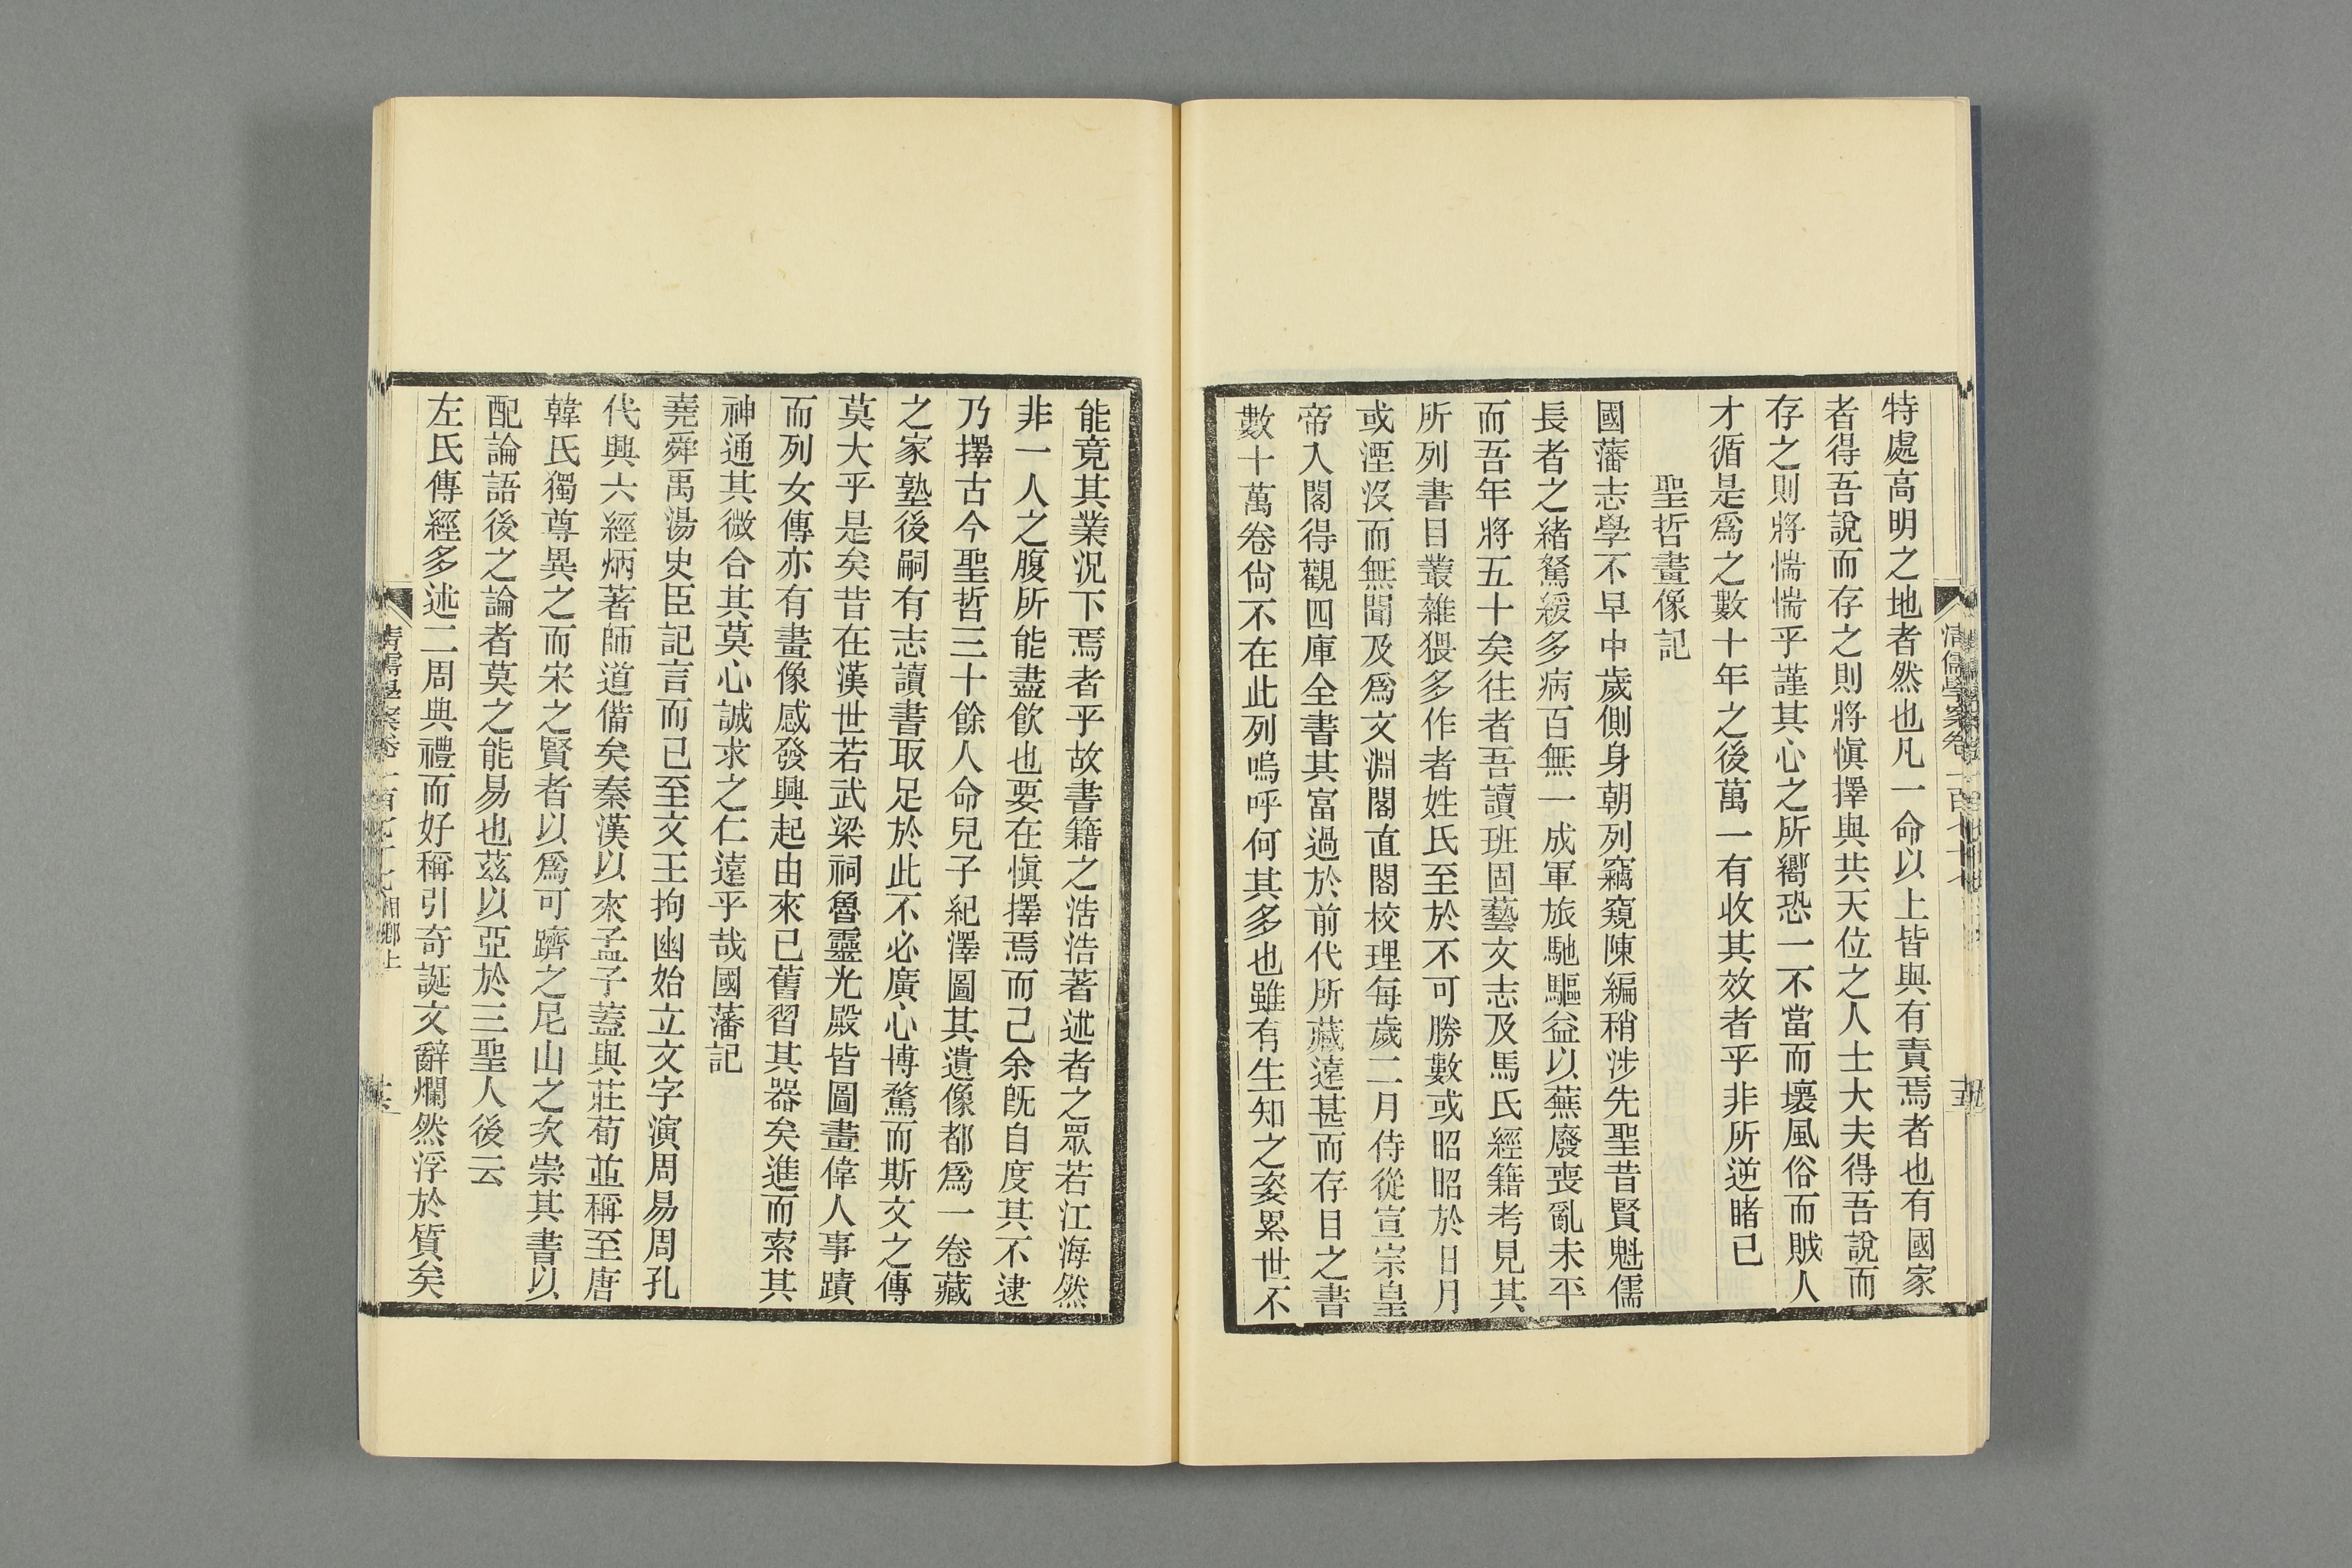 特處高明之地者然也凡一命以上皆與有責焉者也有國家
者得吾說而存之則將慎擇與共天位之人士大夫得吾說而
存之則將惴惴乎謹其心之所嚮恐一不當而壞風俗而賊人
才循是爲之數十年之後萬一有收其效者乎非所逆睹已
聖哲畫像記
國藩志學不早中歲側身朝列竊窺陳編稍涉先聖昔賢魁儒
長者之緒駑緩多病百無一成軍旅馳驅益以蕪廢喪亂未平
而吾年將五十矣往者吾讀班固藝文志及馬氏經籍考見其
所列書目叢雜猥多作者姓氏至於不可勝數或昭昭於日月
或湮沒而無聞及爲文淵閣直閣校理每歲二月侍從宣宗皇
帝入閣得觀四庫全書其富過於前代所藏遠甚而存目之書
數十萬卷尙不在此列嗚呼何其多也雖有生知之姿累世不
能竟其業況下焉者乎故書籍之浩浩著述者之眾若江海然
非一人之腹所能盡飲也要在慎擇焉而已余既自度其不逮
乃擇古今聖哲三十餘人命兒子紀澤圖其遺像都爲一卷藏
之家塾後嗣有志讀書取足於此不必廣心博騖而斯文之傳
莫大乎是矣昔在漢世若武梁祠魯靈光殿皆圖畫偉人事蹟
而列女傳亦有畫像感發興起由來已舊習其器矣進而索其
神通其微合其莫心誠求之仁遠乎哉國藩記
堯舜禹湯史臣記言而已至文王拘幽始立文字演周易周孔
代興六經炳著師道備矣秦漢以來孟子蓋與莊荀並稱至唐
韓氏獨尊異之而宋之賢者以爲可躋之尼山之次崇其書以
配論語後之論者莫之能易也茲以亞於三聖人後云
左氏傳經多述二周典禮而好稱引奇誕文辭爛然浮於質矣
清儒學案卷一百七十七 湘鄉上